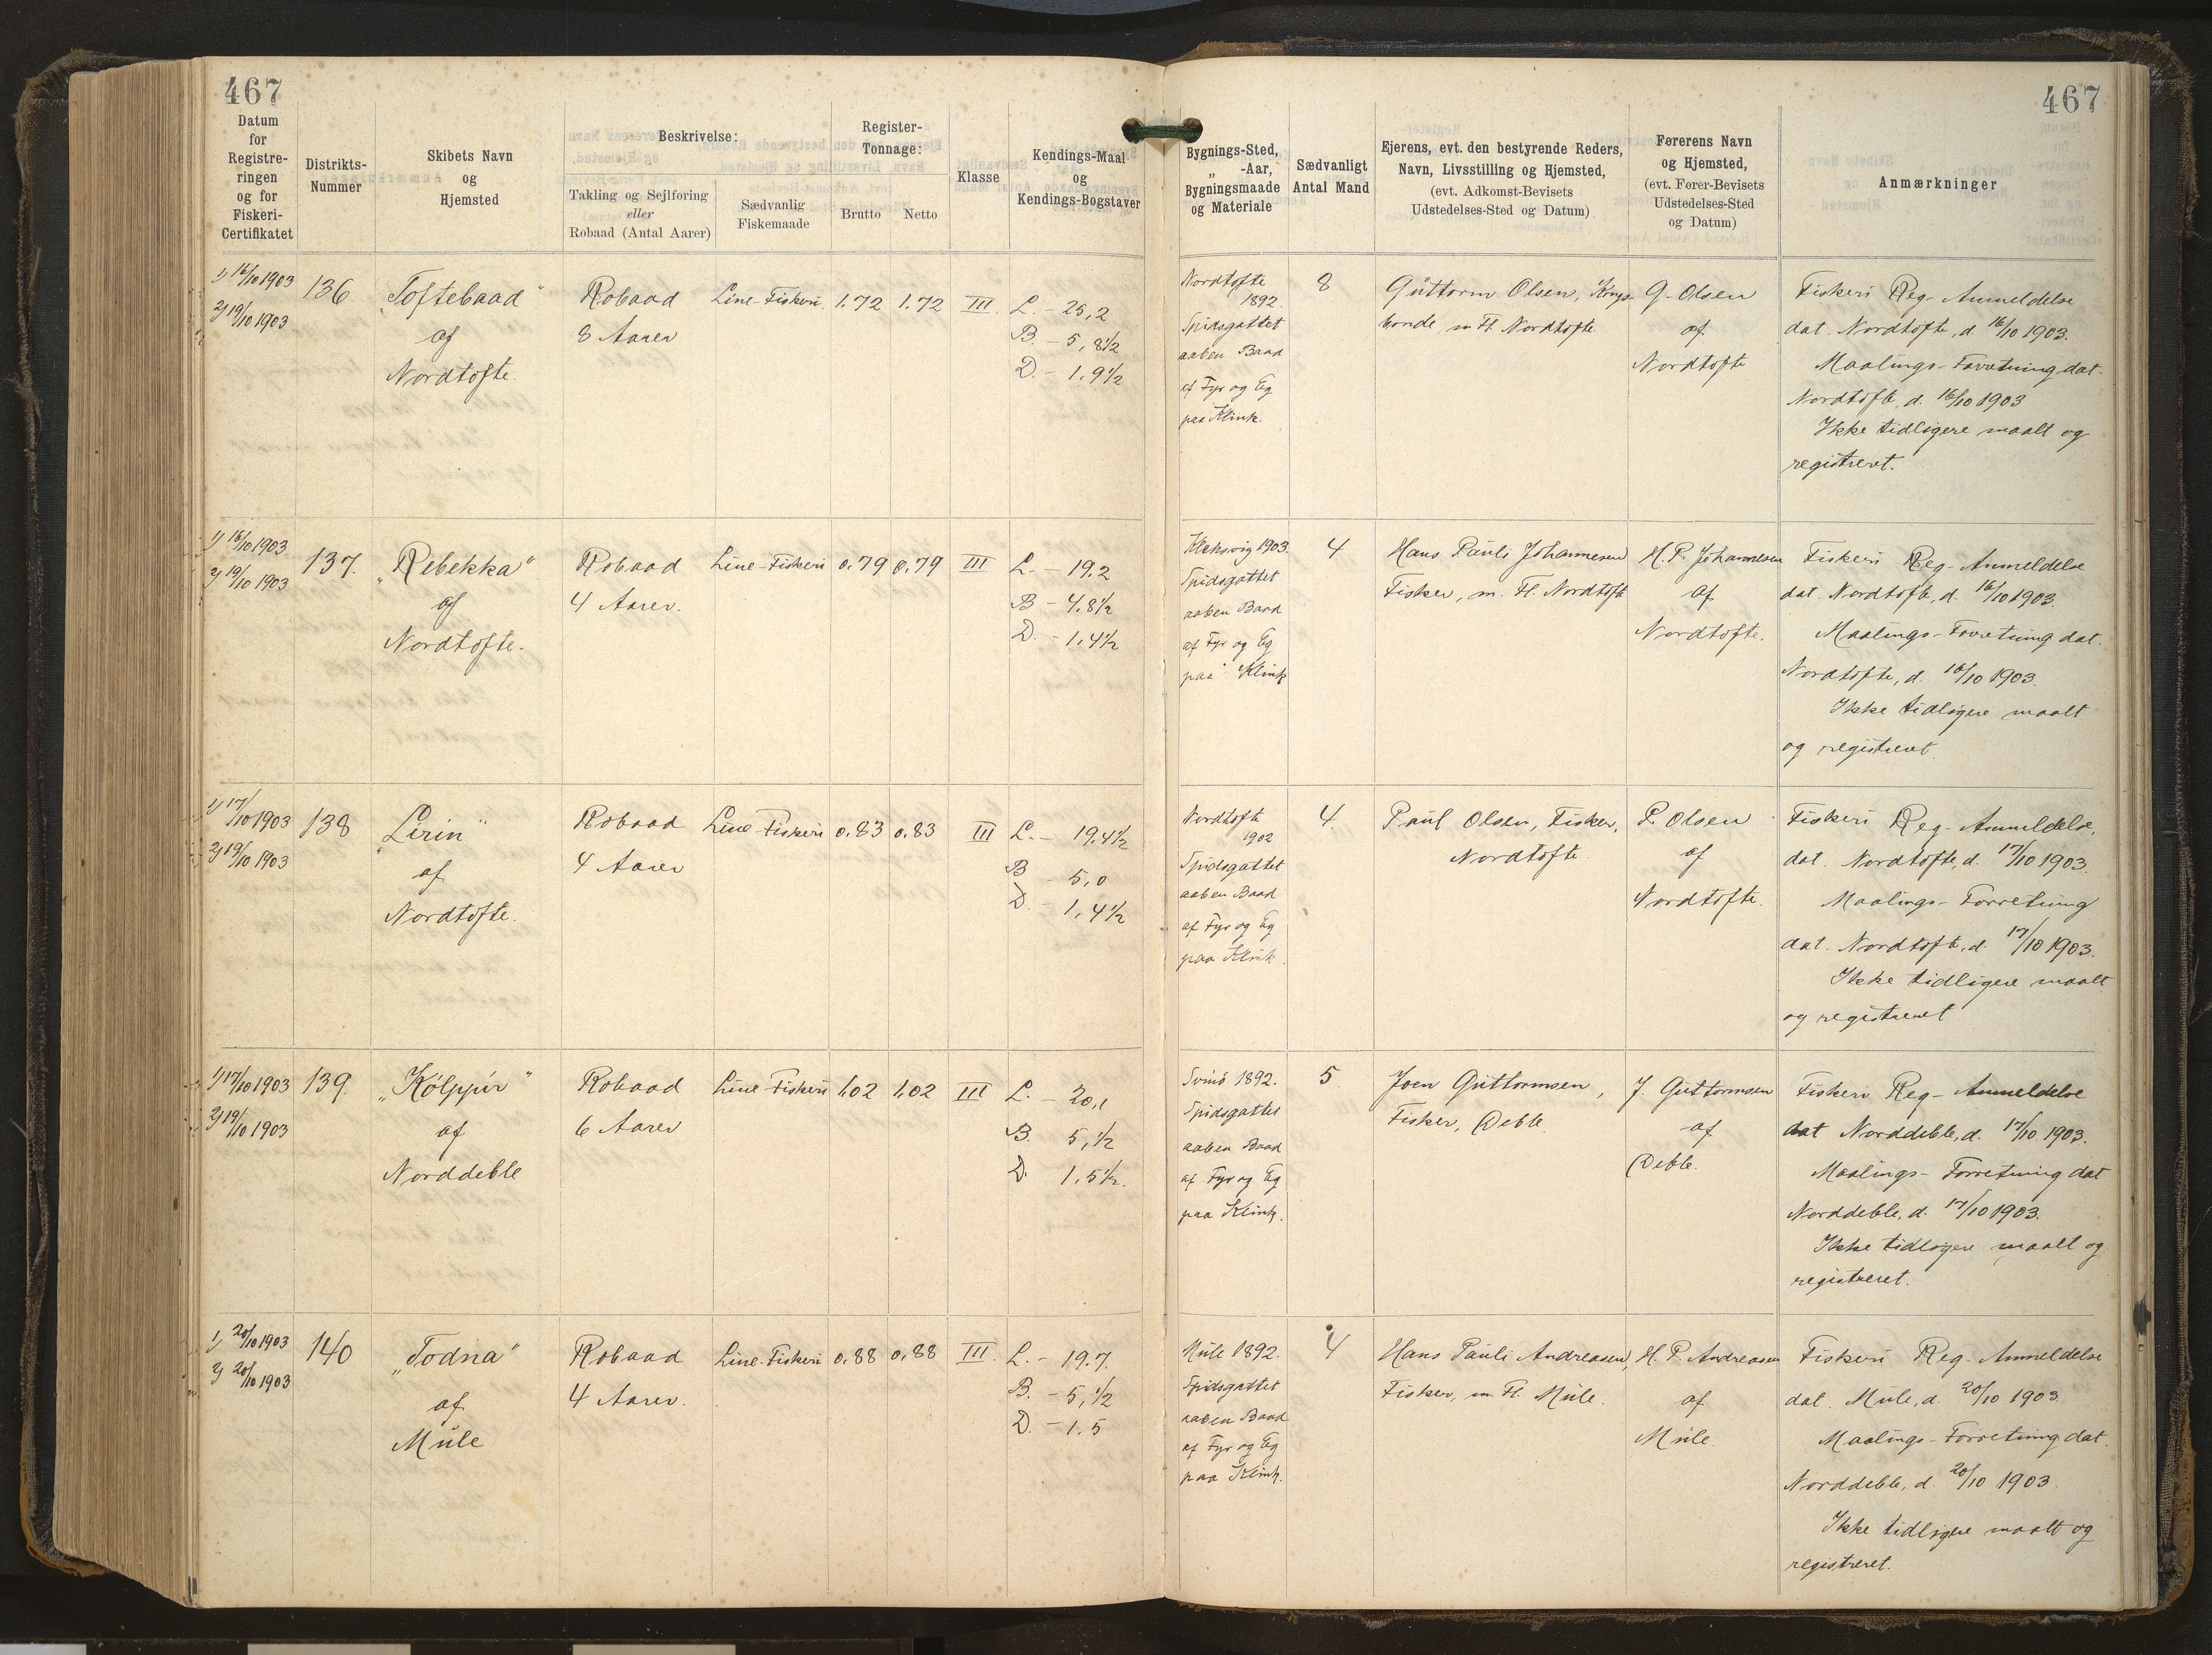 467
467
Datum
for
Registre-
ringen
og for
Fiskeri-
Certifikatet
Distrikts-
Nummer
Skibets Navn
og
Hjemsted
Beskrivelse:
Takling og Sejlføring
eller
Robaad (Antal Aarer)
Sædvanlig
Fiskemaade
Register-
Tonnage:
Brutto
Netto
Klasse
Kendings-Maal
og
Kendings-Bogstaver
Bygnings-Sted,
„ -Aar,
Bygningsmaade
og Materiale
Sædvanligt
Antal Mand
Ejerens, evt. den bestyrende Reders,
Navn, Livsstilling og Hjemsted,
(evt. Adkomst-Bevisets
Udstedelses-Sted og Datum)
Førerens Navn
og Hjemsted,
(evt. Fører-Bevisets
Udstedelses-Sted
og Datum)
Anmærkninger
1) 16/10 1903
2) 19/10 1903
136
„Toftebaad“
af
Nordtofte.
Robaad
8 Aarer
Line-Fiskeri
1.72
1.72
III.
L. - 25,2
B. - 5,8½
D. - 1.9½
Nordtofte
1892.
Spidsgattet
aaben Baad
af Fyr og Eg
paa Klink.
8
Guttorm Olsen, Kongs-
bonde, m Fl. Nordtofte
G. Olsen
af
Nordtofte
Fiskeri Reg- Anmeldelse
dat. Nordtofte, d 16/10 1903.
Maalings-Forretning dat.
Nordtofte, d. 16/10 1903
Ikke tidligere maalt og
registreret.
1) 16/10 1903
2) 19/10 1903
137.
„Rebekka“
af
Nordtofte.
Robaad
4 Aarer.
Line-Fiskeri
0.79
0.79
III
L. - 19.2
B - 4.8½
D. - 1,4½
Kleksvig 1903.
Spidsgattet
aaben Baad
af Fyr og Eg
paa Klink
4
Hans Pauli Johannesen
Fisker, m. Fl. Nordtofte
H. P. Johannesen
af
Nordtofte.
Fiskeri Reg- Anmeldelse
dat. Nordtofte, d. 16/10 1903.
Maalings-Forretning dat.
Nordtofte, d. 16/10 1903.
Ikke tidligere maalt
og registreret.
1) 17/10 1903
2) 19/10 1903
138
„Lirin“
af
Nordtofte.
Robaad
4 Aarer
Line-Fiskeri
0.83
0.83
III
L. - 19.4½
B - 5,0
D. - 1,4½
Nordtofte
1902
Spidsgattet
aaben Baad
af Fyr og Eg
paa Klink.
4.
Paul Olsen, Fisker,
Nordtofte.
P. Olsen
af
Nordtofte.
Fiskeri Reg- Anmeldelse,
dat. Nordtofte, d. 17/10 1903.
Maalings-Forretning
dat. Nordtofte, d. 17/10 1903.
Ikke tidligere maalt
og registreret
1) 17/10 1903
2) 19/10 1903
139.
„Kólppúr“
af
Norddeble
Robaad
6 Aarer
Line-Fiskeri
1,02
1,02
III
L. - 20,1
B. 5,½
D. 1.5½.
Svinö 1892.
Spidsgattet
aaben Baad
af Fyr og Eg
paa Klink.
5.
Joen Guttormsen,
Fisker, Deble.
J. Guttormsen
af
Deble.
Fiskeri Reg- Anmeldelse
dat Norddeble, d. 17/10 1903.
Maalings-Forretning dat
Norddeble, d. 17/10 1903.
Ikke tidligere maalt og
registreret.
1) 20/10 1903
2) 20/10 1903
140
„Todna“
af
Mule
Robaad
4 Aarer.
Line-Fiskeri
0.88
0.88
III.
L. - 19.7.
B. - 5,½
D. - 1.5
Mule 1892.
Spidsgattet
aaben Baad
af Fyr og Eg
paa Klink.
4
Hans Pauli Andreasen,
Fisker, m. Fl. Mule.
H. P. Andreasen
af
Mule.
Fiskeri Reg. Anmeldelse
dat. Mule, d. 20/10 1903.
Maalings-Forretning dat.
Norddeble, d. 20/10 1903.
Ikke tidligere maalt og
registreret.